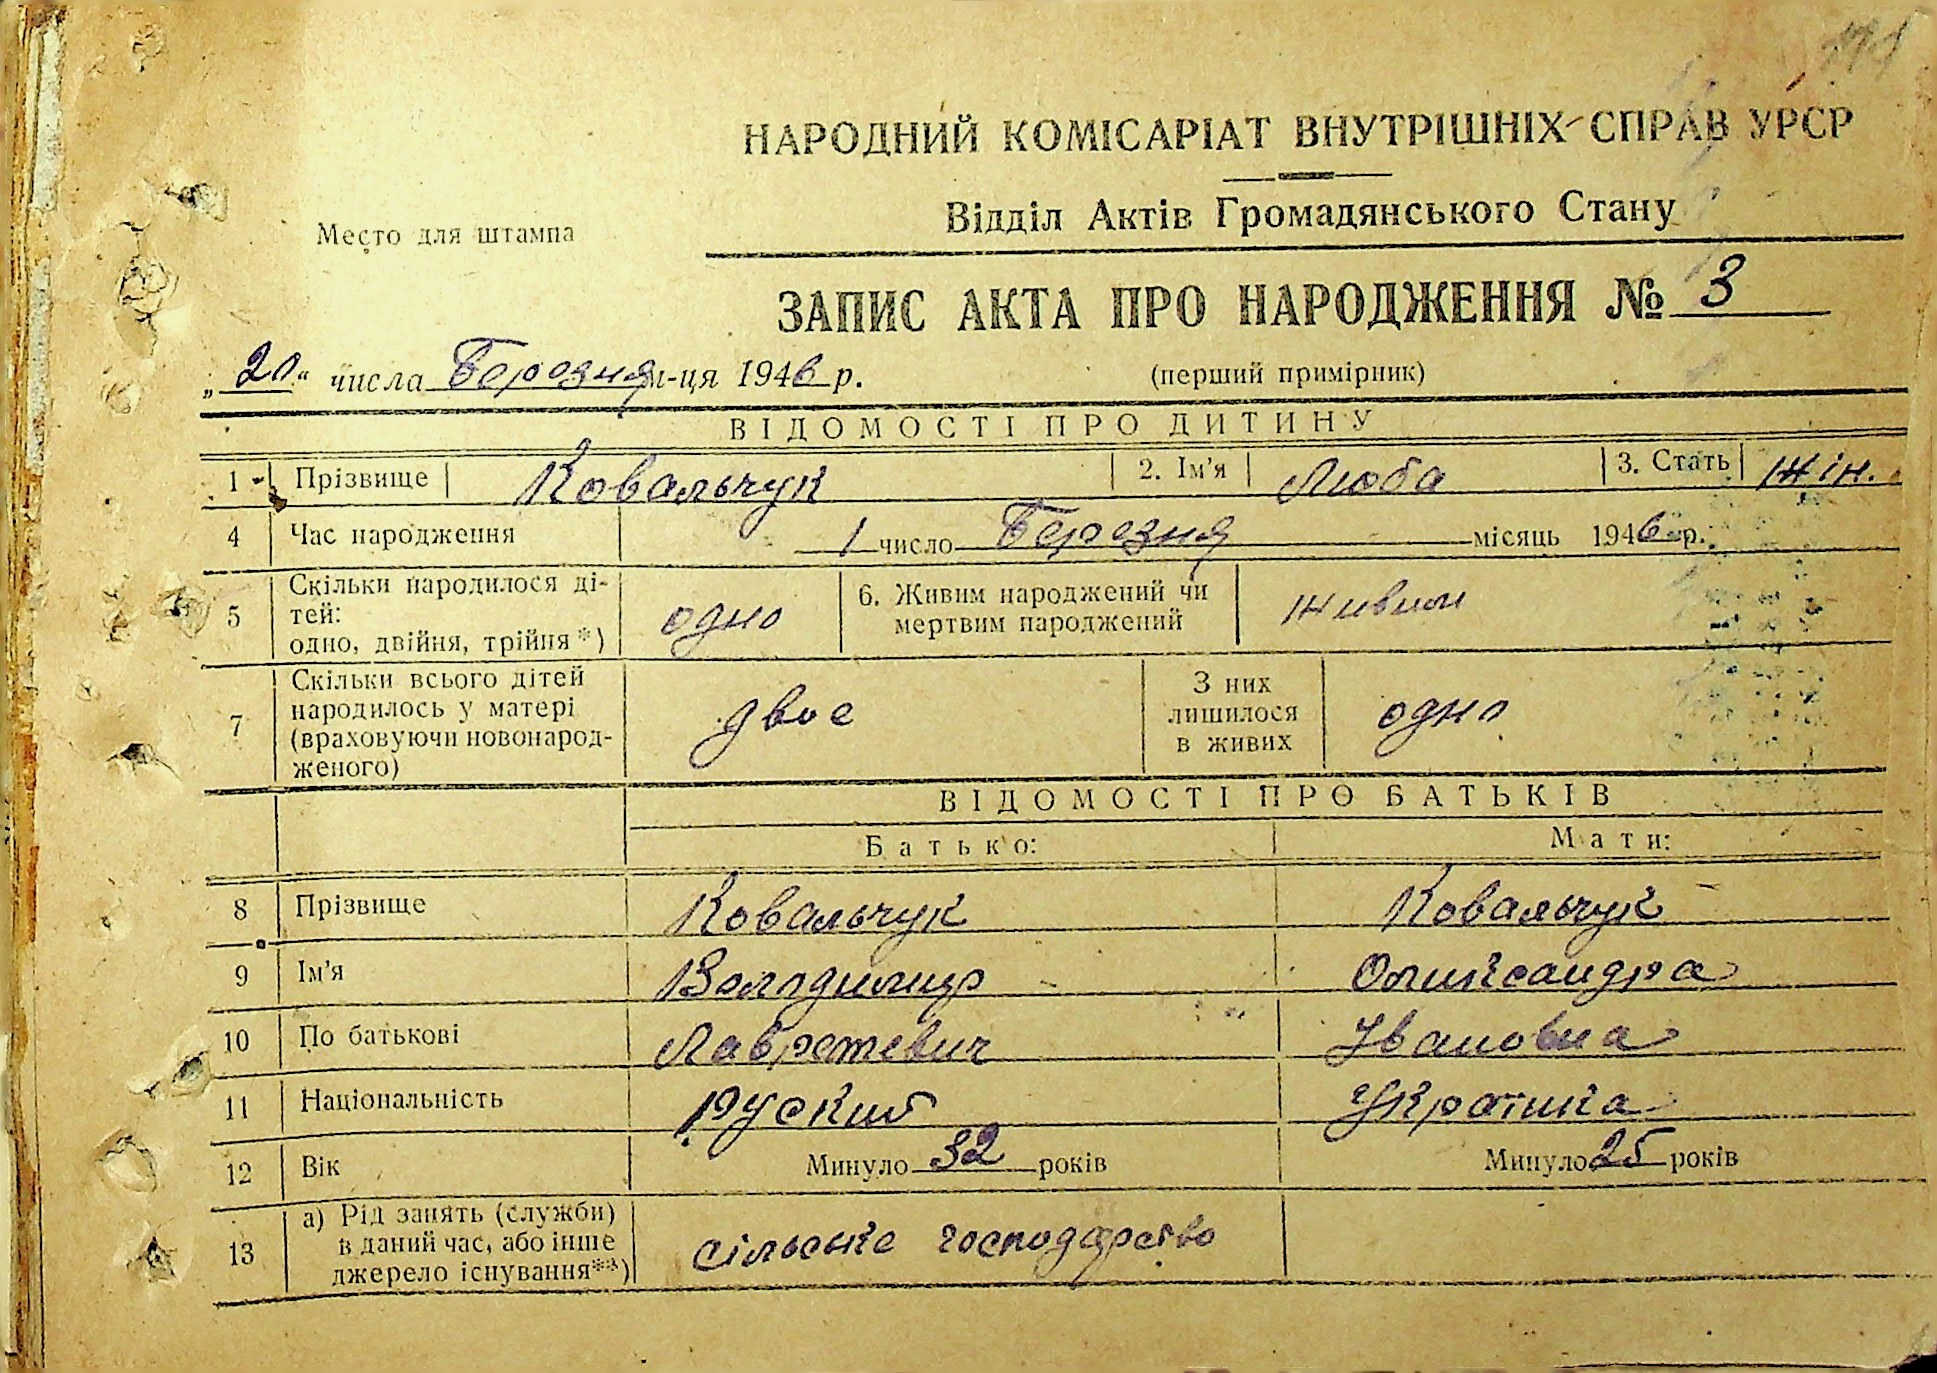 НАРОДНИЙ КОМІСАРІАТ ВНУТРІШНІХ СПРАВ УРСР
Відділ Актів Громадянського Стану
Место для штампа
ЗАПИС АКТА ПРО НАРОДЖЕННЯ № 3
„20“ числа Березня м-ця 1946 р.
(перший примірник)
ВІДОМОСТІ ПРО ДИТИНУ
1 Прізвище Ковальчук 2. Ім'я Люба 3. Стать жін.
4 Час народження 1 число Березня місяць 1946 р.
5 Скільки народилося ді-
тей:
одно, двійня, трійня*) одно
6. Живим народжений чи
мертвим народжений живим
7 Скільки всього дітей
народилось у матері
(враховуючи новонарод-
женого) двоє
З них
лишилося
в живих одно
ВІДОМОСТІ ПРО БАТЬКІВ
Батько: Мати:
8 Прізвище Ковальчук Ковальчук
9 Ім'я Володимир Олександра
10 По батькові Лавретевич Івановна
11 Національність Руский Українка
12 Вік Минуло 32 років Минуло 25 років
13 а) Рід занять (служби)
в даний час, або інше
джерело існування**) сільське господарство